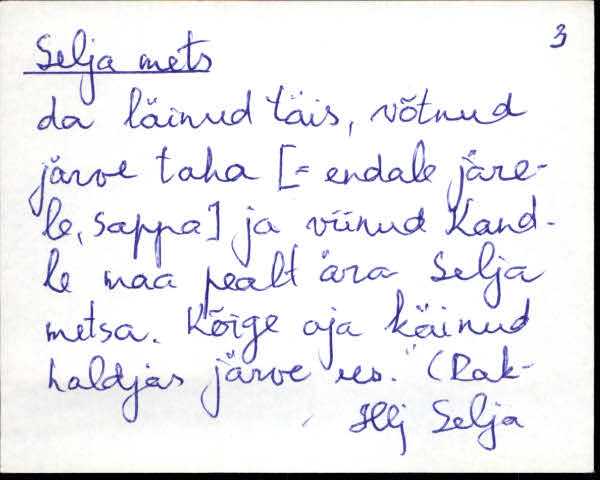 3
Selja mets
da läinud täis, võtnud
järve taha [= endale järe-
le, sappa] ja viinud Kand-
le maa pealt ära Selja
metsa. Kõige aja käinud
haldjas järve ees." (Rak-
Hlj Selja